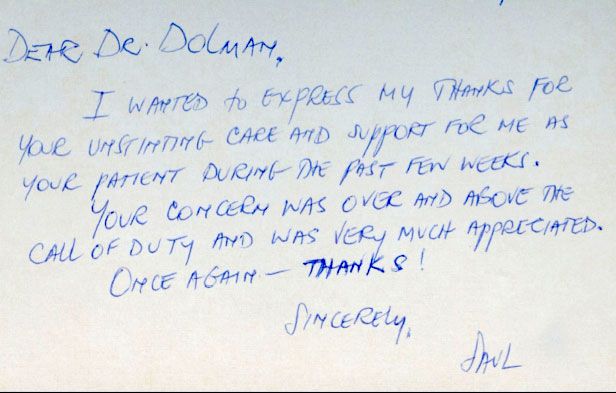 DEAR DR. DOLMAN,
I WANTED to EXPRESS MY THANKS FOR
YOUR UNSTINTING CARE AND SUPPORT FOR ME AS
YOUR PATIENT DURING THE PAST FEW WEEKS.
YOUR CONCERN WAS OVER AND ABOVE THE
CALL OF DUTY AND WAS VERY MUCH APPRECIATED.
ONCE AGAIN — THANKS!
SINCERELY,
SAUL